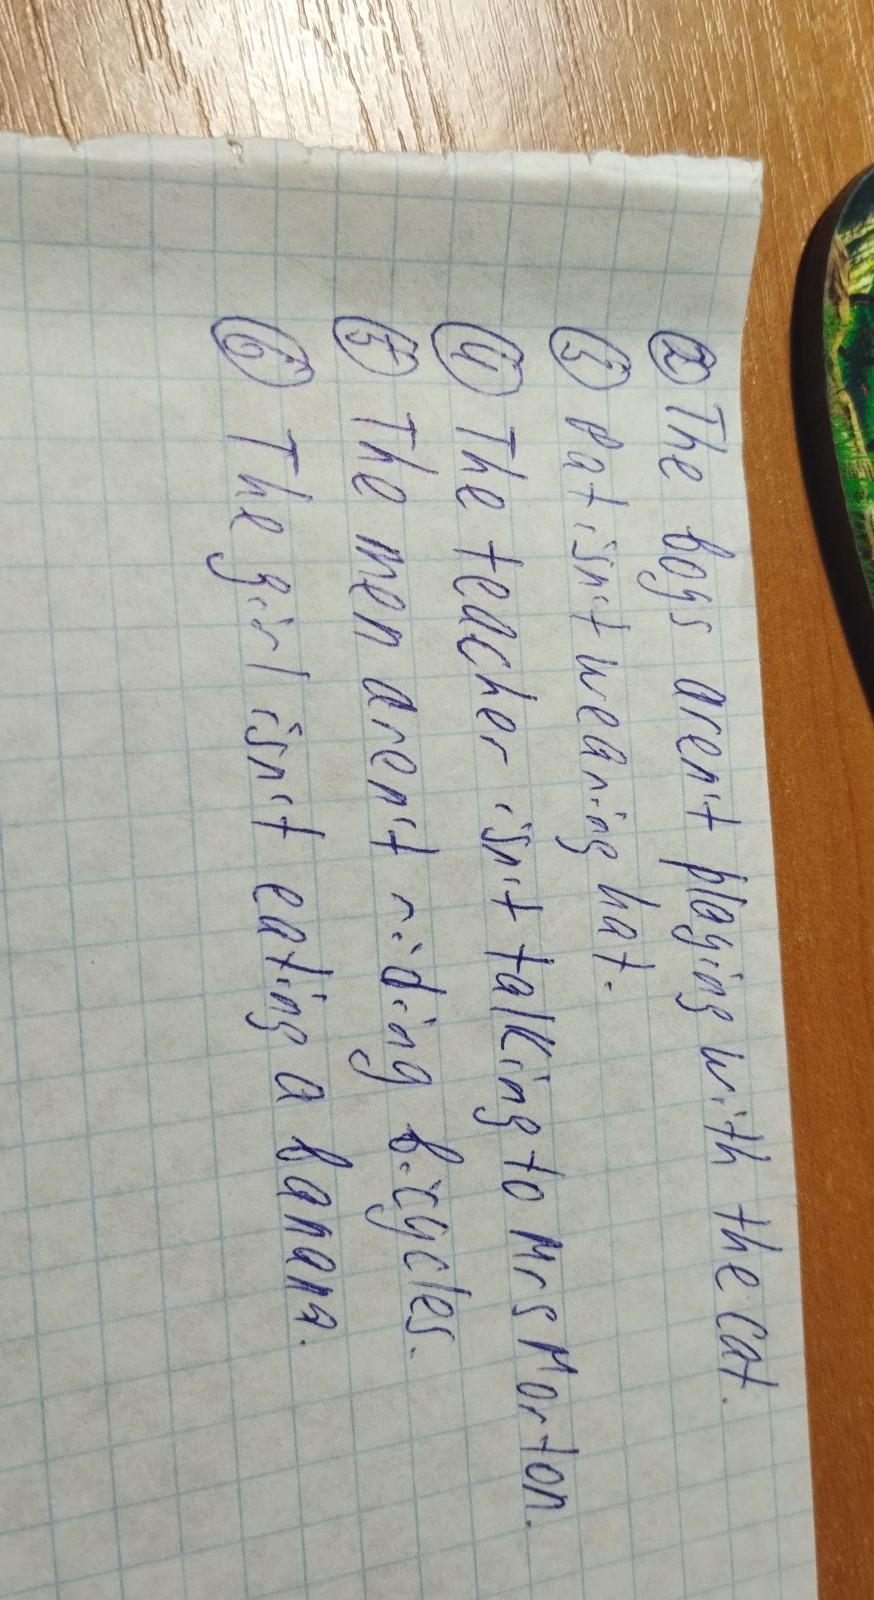 ② The boys aren't playing with the cat.
③ Pat isn't wearing hat.
④ The teacher isn't talking to Mrs Morton.
⑤ The men aren't riding bicycles.
⑥ The girl isn't eating a banana.